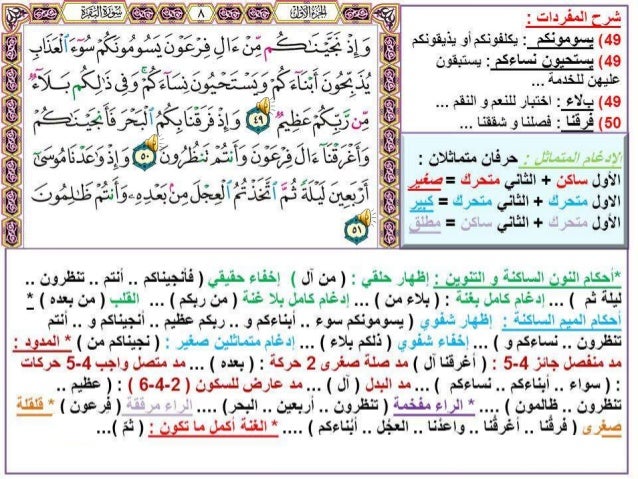 سُورَةُ البَقَرَةِ
٨
الجُزْءُ الأَوَّلُ
وَإِذْ نَجَّيْنَـٰكُم مِّنْ ءَالِ فِرْعَوْنَ يَسُومُونَكُمْ سُوٓءَ ٱلْعَذَابِ
يُذَبِّحُونَ أَبْنَآءَكُمْ وَيَسْتَحْيُونَ نِسَآءَكُمْ ۚ وَفِى ذَٰلِكُم بَلَآءٌ
مِّن رَّبِّكُمْ عَظِيمٌ ٤٩ وَإِذْ فَرَقْنَا بِكُمُ ٱلْبَحْرَ فَأَنجَيْنَـٰكُمْ
وَأَغْرَقْنَآ ءَالَ فِرْعَوْنَ وَأَنتُمْ تَنظُرُونَ ٥٠ وَإِذْ وَٰعَدْنَا مُوسَىٰٓ
أَرْبَعِينَ لَيْلَةً ثُمَّ ٱتَّخَذْتُمُ ٱلْعِجْلَ مِنۢ بَعْدِهِۦ وَأَنتُمْ ظَـٰلِمُونَ
٥١
شرح المفردات :
49) يسومونكم : يكلفونكم أو يذيقونكم
49) يستحيون نساءكم : يستبقون
عليهن للخدمة ...
49) بلاء : اختبار للنعم و النقم ...
50) فرقنا : فصلنا و شققنا ...
الإدغام المتماثل : حرفان متماثلان :
الأول ساكن + الثاني متحرك = صغير
الاول متحرك + الثاني متحرك = كبير
الأول متحرك + الثاني ساكن = مطلق
*أحكام النون الساكنة و التنوين : إظهار حلقي : ( من آل ) إخفاء حقيقي ( فأنجيناكم .. أنتم .. تنظرون ..
ليلة ثم ) ... إدغام كامل بغنة : ( بلاء من ) ... إدغام كامل بلا غنة ( من ربكم ) ... القلب ( من بعده ) *
أحكام الميم الساكنة : إظهار شفوي ( يسومونكم سوء .. أبناءكم و .. ربكم عظيم .. أنجيناكم و .. أنتم
تنظرون .. نساءكم و ) ... إخفاء شفوي ( ذلكم بلاء ) ... إدغام متماثلين صغير : ( نجيناكم من ) * المدود :
مد منفصل جائز 4-5 : ( أغرقنا آل ) مد صلة صغرى 2 حركة : ( بعده ) ... مد متصل واجب 4-5 حركات
: ( سواء .. أبناءكم .. نساءكم ) ... مد البدل ( آل ) ... مد عارض للسكون ( 2-4-6 ) : ( عظيم ..
تنظرون .. ظالمون ) .... * الراء مفخمة ( تنظرون .. أربعين .. البحر) .... الراء مرققة ( فرعون ) * قلقلة
صغرى ( فرقْنا .. أغرقْنا .. واعدْنا .. العجْل .. أبْناءكم ) .... * الغنة أكمل ما تكون : ( ثمّ )...